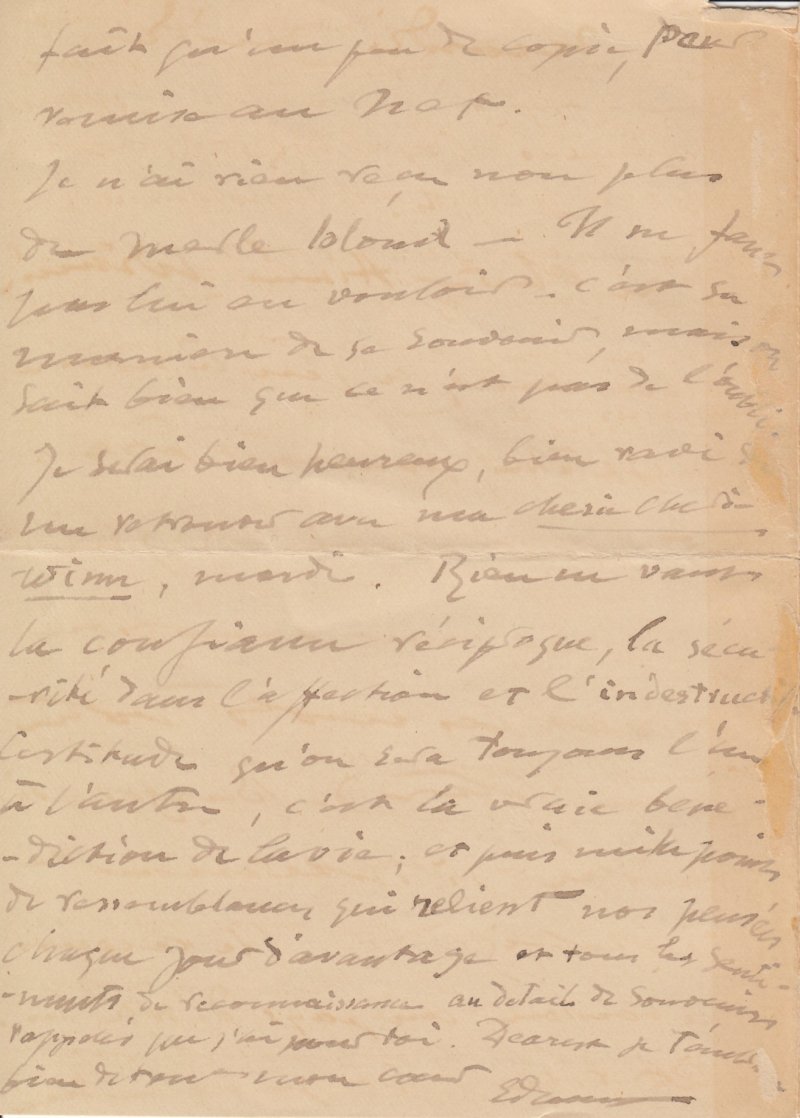 fait qu'un peu de copie, pour
remise au net.
Je n'ai rien reçu non plus
du Merle blond — Il ne faut
pas lui en vouloir. c'est sa
maniere de se souvenir, mais on
sait bien que ce n'est pas de l'oubli.
Je serai bien heureux, bien ravi
me retrouver avec ma
, mardi. Rien ne vaut
la confiance réciproque, la sécu
-rité dans l'affection et l'indestruct
certitude qu'on sera toujours l'un
à l'autre, c'est la vraie béné-
-diction de la vie; et puis mille points
de ressemblances qui relient nos pensées
chaque jour d'avantage et tous les senti-
-ments de reconnaissance au detail de souvenirs
rappelés que j'ai pour toi. Dearest je
bien de tout mon cœur